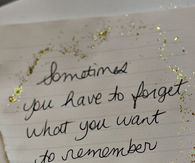 Sometimes
you have to forget
what you want
to remember